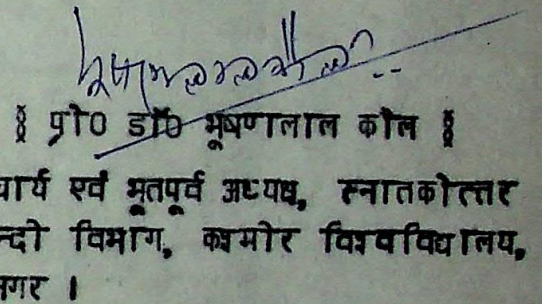 भूषणलाल कौल
§ प्रो0 डॉ0 भूषणलाल कौल §
चार्य एवं भूतपूर्व अध्यक्ष, स्नातकोत्तर
न्दी विभाग, कश्मीर विश्वविद्यालय,
नगर ।